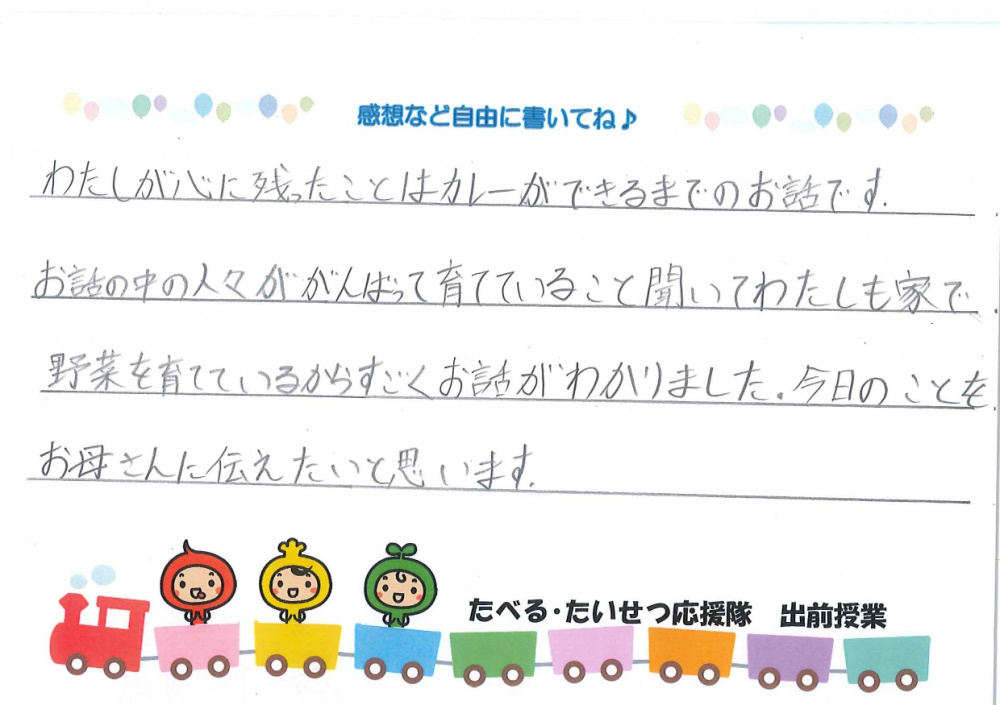 感想など自由に書いてね♪
わたしが心に残ったことはカレーができるまでのお話です.
お話の中の人々ががんばって育てていること聞いてわたしも家で
野菜を育てているからすごくお話がわかりました。今日のことを
お母さんに伝えたいと思います.
たべる・たいせつ応援隊 出前授業